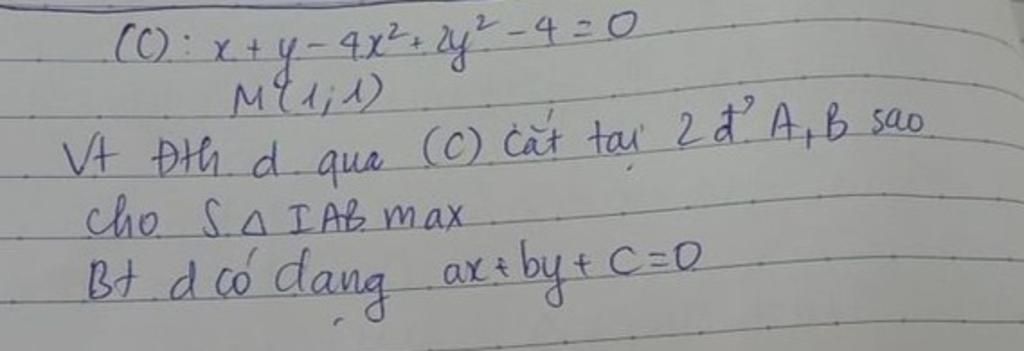 (C): x + y - 4x² + 2y² - 4 = 0
M(1; 1)
Vt Đth d qua (C) cắt tại 2 đ' A, B sao
cho S Δ IAB max
Bt d có dạng ax + by + c = 0